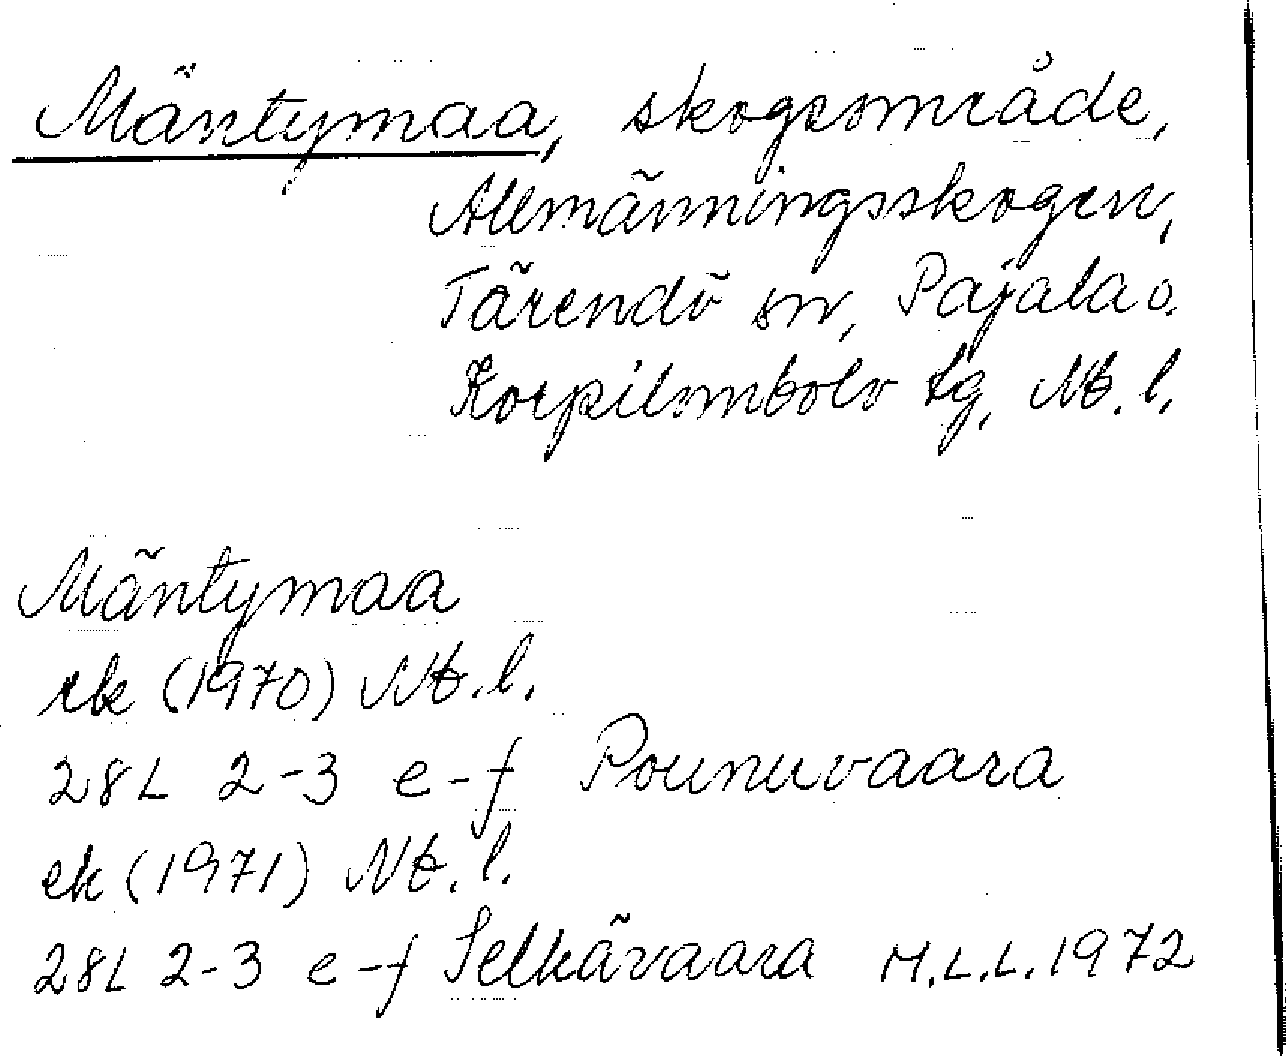 Mäntymaa, skogsområde,
Allmänningsskogen,
Tärendö sn, Pajala o.
Korpilombolo tg, Nb.l.
Mäntymaa
ek (1970) Nb.l.
28L 2-3 e-f Pounuvaara
ek (1971) Nb.l.
28L 2-3 e-f Selkävaara M.L.L. 1972